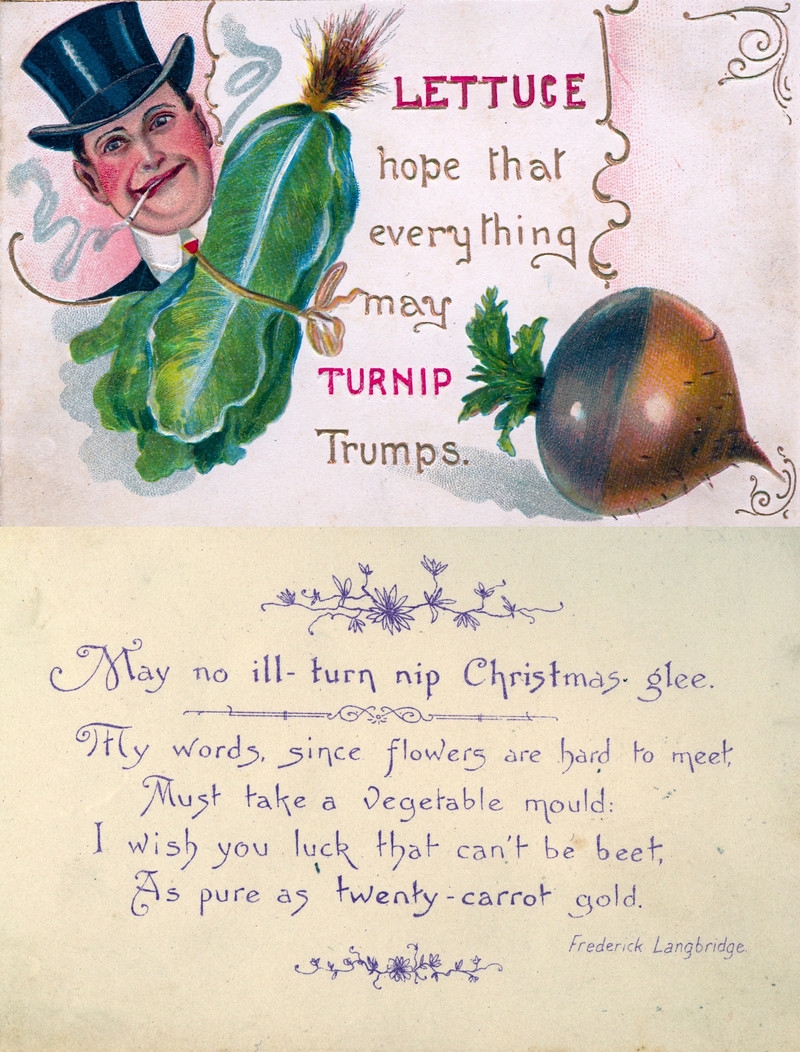 LETTUCE
hope that
everything
may
TURNIP
Trumps.
May no ill-turn nip Christmas glee.
My words, since flowers are hard to meet,
Must take a vegetable mould:
I wish you luck that can't be beet,
As pure as twenty-carrot gold.
Frederick Langbridge.